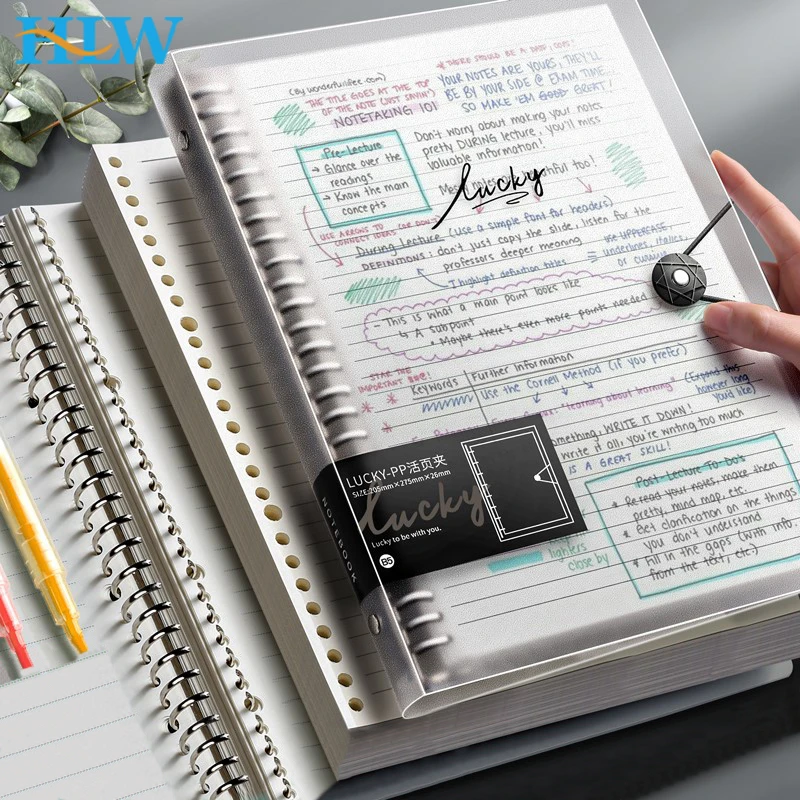 HLW
(By wonderfullfee.com)
* THERE SHOULD BE A DATE, TOO!
THE TITLE GOES AT THE TOP
OF THE NOTE (JUST SAYIN')
NOTETAKING 101
YOUR NOTES ARE YOURS, THEY'LL
BE BY YOUR SIDE @ EXAM TIME...
SO MAKE 'EM GOOD GREAT!
Don't worry about making your notes
pretty DURING lecture, you'll miss
valuable information!
Pre-Lecture
→ Glance over the
readings
→ Know the main
concepts
too!
lucky
USE ARROWS TO (OR DON'T)
CONNECT IDEAS
During Lecture (use a simple font for headers)
DEFINITIONS: don't just copy the slide, listen for the
professors deeper meaning
highlight definition titles
= use UPPERCASE,
underlines, italics,
or
This is what a main point looks like
↳ A subpoint
* Maybe there's even more points needed
STAR THE
IMPORTANT
Keywords
Further Information
Use the Cornell Method (if you prefer)
"learning about learning"
(Expand this
however long
you'd like)
something, WRITE IT DOWN!
write it all, you're writing too much
IS A GREAT SKILL!
LUCKY-PP活页夹
SIZE:205mm×275mm×26mm
lucky
Lucky to be with you.
B5
NOTEBOOK
Post Lecture To Do's
* Reread your notes, make them
pretty, mind map, etc.
* Get clarification on the things
you don't understand
* Fill in the gaps (with info.
from the text, etc.)
lighters
close by